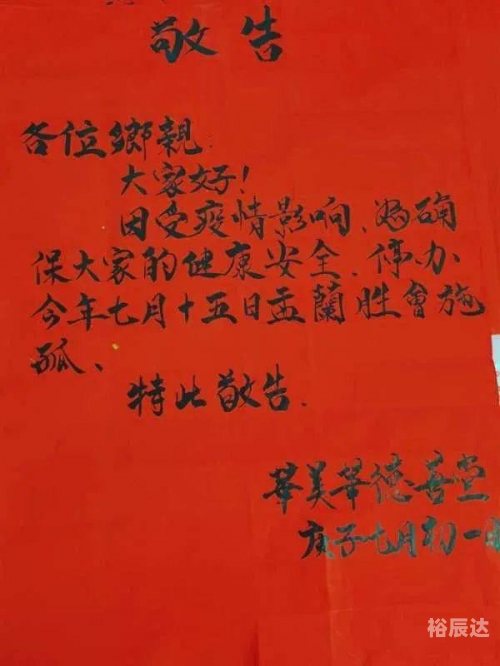 敬告
各位鄉親:
大家好!
因受疫情影响、為确
保大家的健康安全、停办
今年七月十五日盂蘭胜會施
孤、
特此敬告.
華美華德善堂
庚子七月初一日
裕辰达